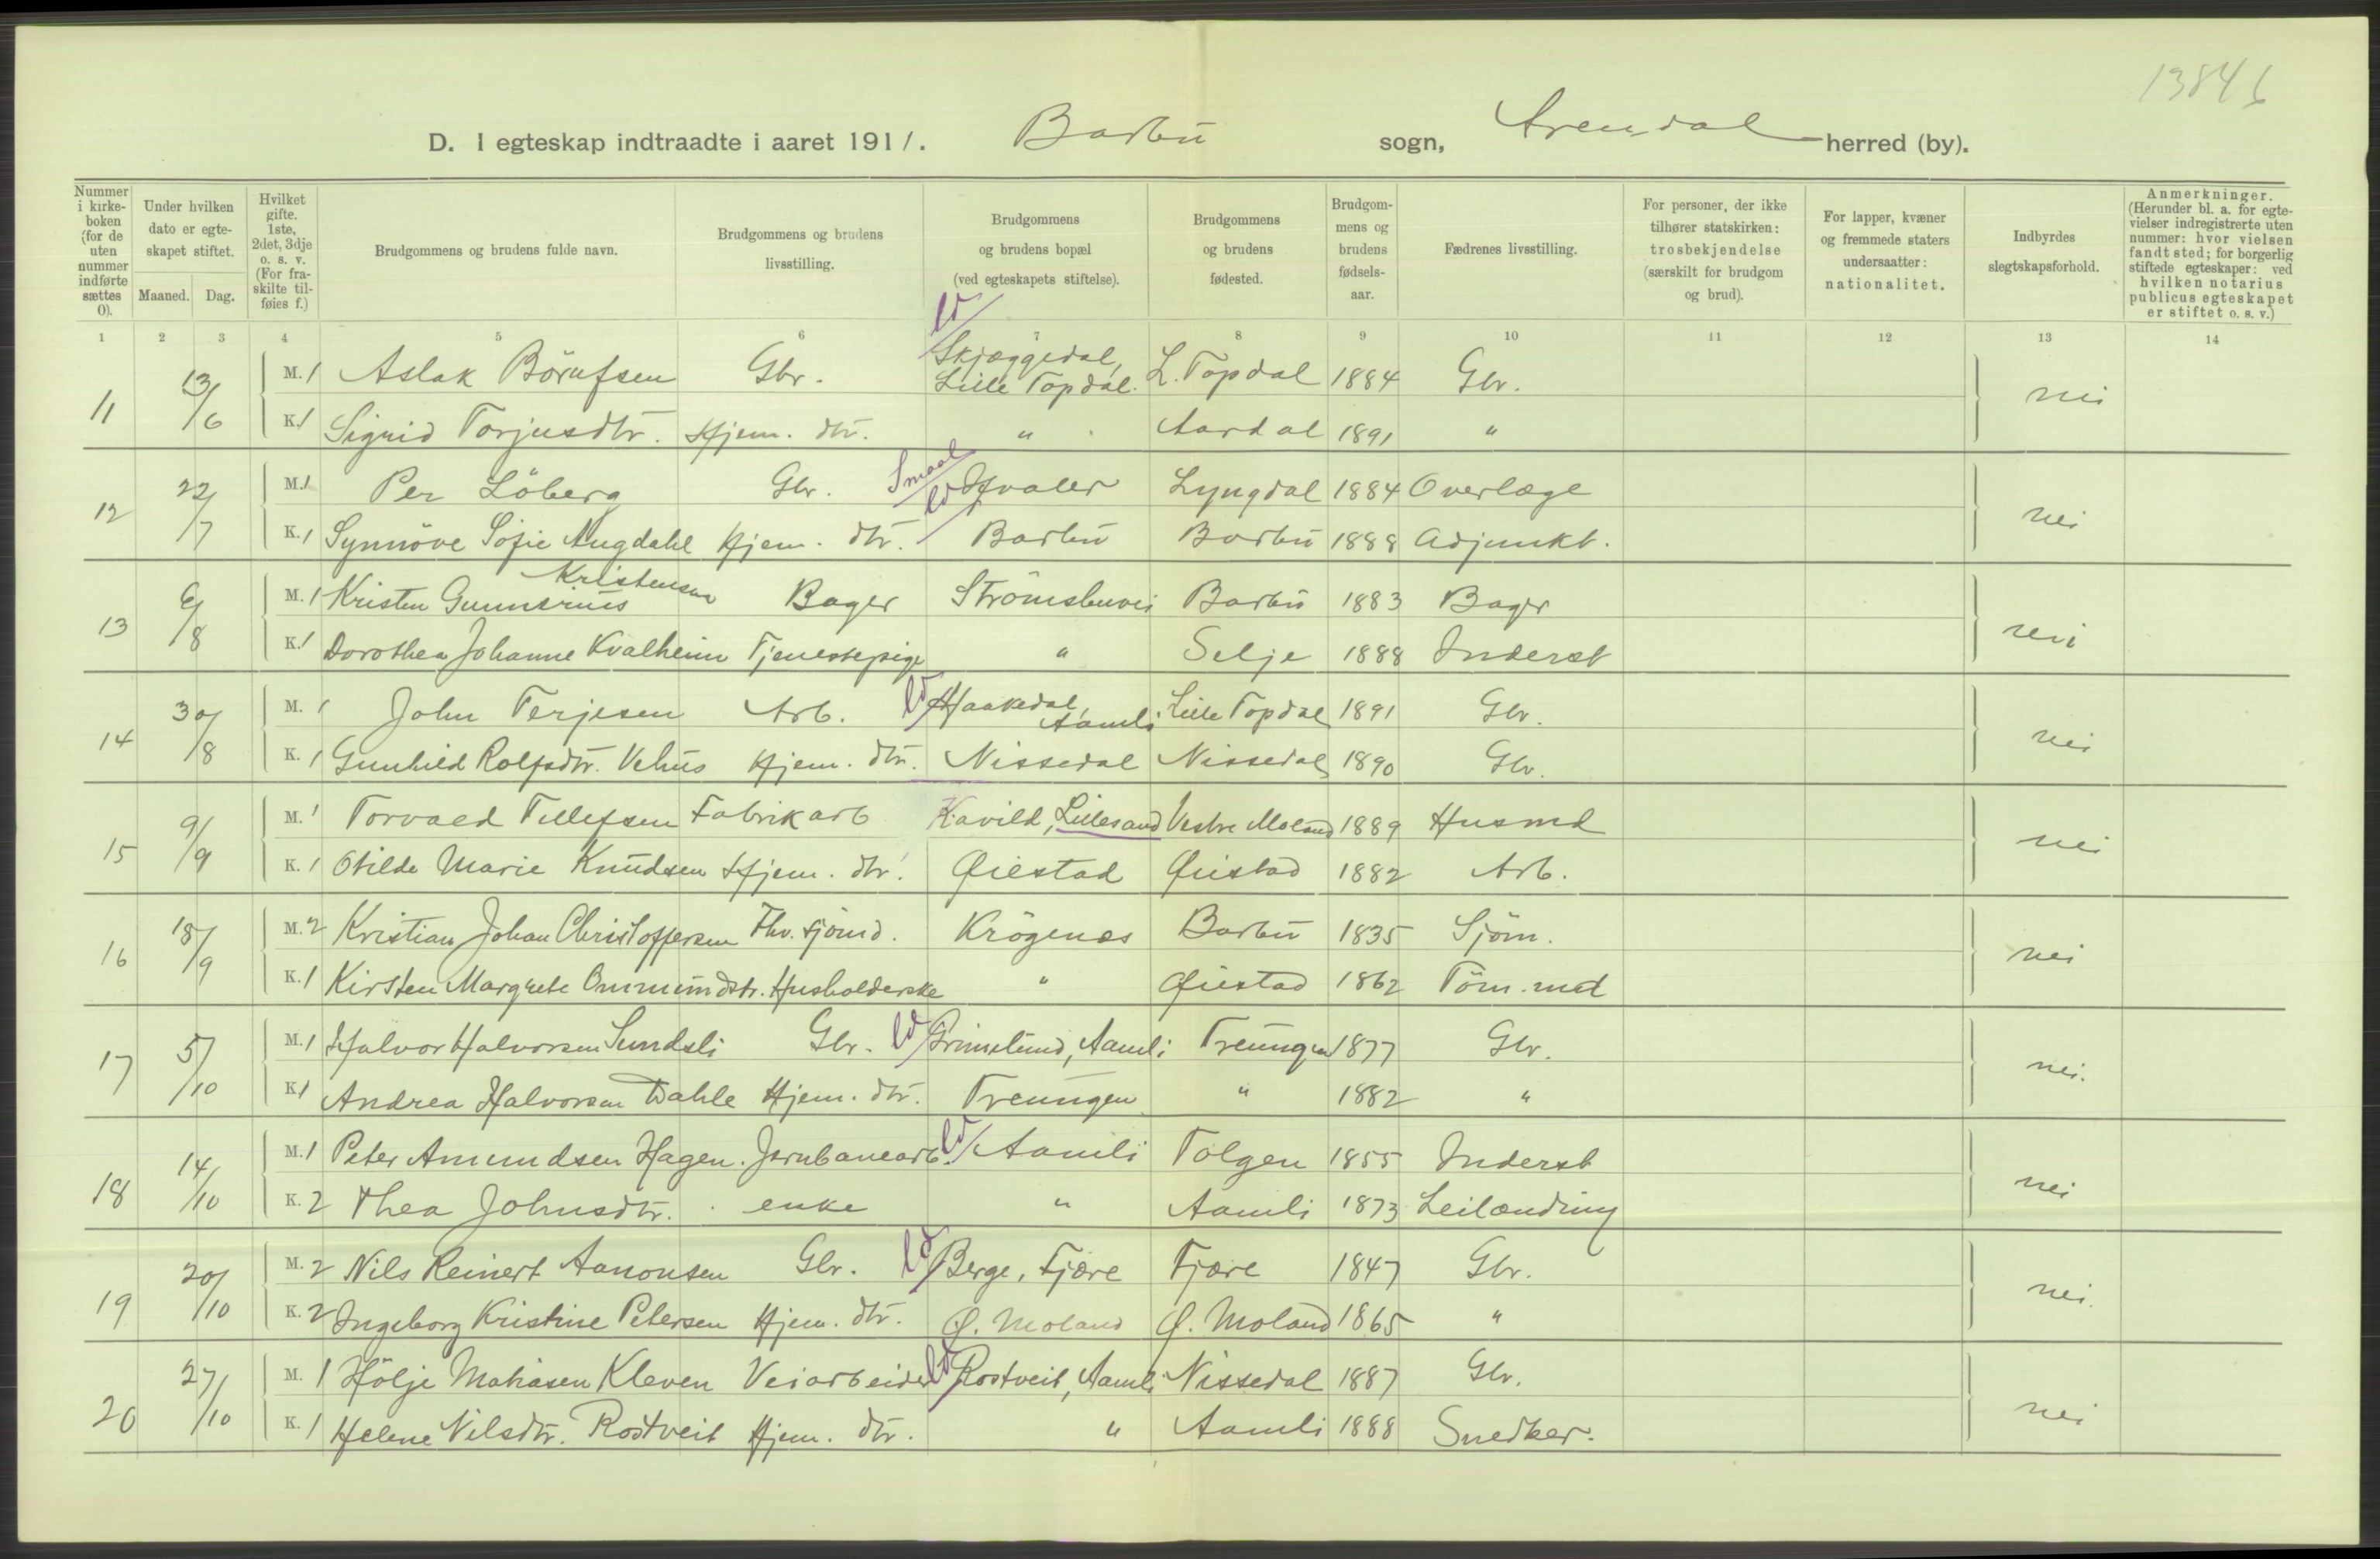 13846
D. I egteskap indtraadte i aaret 1911. Barbu sogn, Arendal herred (by).
Nummer i kirkeboken (for de uten nummer indførte sættes 0).
Under hvilken dato er egteskapet stiftet.
Maaned. Dag.
Hvilket gifte. 1ste, 2det, 3dje o. s. v. (For fraskilte tilføies f.)
Brudgommens og brudens fulde navn.
Brudgommens og brudens livsstilling.
Brudgommens og brudens bopæl (ved egteskapets stiftelse).
Brudgommens og brudens fødested.
Brudgommens og brudens fødselsaar.
Fædrenes livsstilling.
For personer, der ikke tilhører statskirken: trosbekjendelse (særskilt for brudgom og brud).
For lapper, kvæner og fremmede staters undersaatter: nationalitet.
Indbyrdes slegtskapsforhold.
Anmerkninger. (Herunder bl. a. for egtevielser indregistrerte uten nummer: hvor vielsen fandt sted; for borgerlig stiftede egteskaper: ved hvilken notarius publicus egteskapet er stiftet o. s. v.)
1 2 3 4 5 6 7 8 9 10 11 12 13 14
11 13/6 M. 1 Aslak Börufsen Gbr. Skjæggedal, Lille Topdal. L. Topdal 1884 Gbr. nei
K. 1 Sigrid Torjusdtr. Hjem. dtr. " Aardal 1891 "
12 22/7 M. 1 Per Löberg Gbr. Smaal Hvaler Lyngdal 1884 Overlæge nei
K. 1 Synnöve Sofie Augdahl Hjem. dtr. Barbu Barbu 1888 Adjunkt.
13 6/8 M. 1 Kristen Gunnerius Kristensen Bager Strömsbuvei Barbu 1883 Bager nei
K. 1 Dorothea Johanne Kvalheim Tjenestepige " Selje 1888 Inderst
14 30/8 M. 1 John Terjesen Arb. Haakedal, Aamli Lille Topdal 1891 Gbr. nei
K. 1 Gunhild Rolfsdtr. Vehus Hjem. dtr. Nissedal Nissedal 1890 Gbr.
15 9/9 M. 1 Torvald Tellefsen Fabrikarb Kavild, Lillesand Vestre Moland 1889 Husmd nei
K. 1 Otilde Marie Knudsen Hjem. dtr. Øiestad Øiestad 1882 Arb.
16 18/9 M. 2 Kristian Johan Christoffersen Fhv. sjömd. Krögenes Barbu 1835 Sjöm. nei
K. 1 Kirsten Margrete Ommundstr. Husholderske " Øiestad 1862 Töm.md
17 5/10 M. 1 Halvor Halvorsen Sundsli Gbr. Grimelund, Aamli Treungen 1877 Gbr. nei.
K. 1 Andrea Halvorsen Dahle Hjem. dtr. Treungen " 1882 "
18 14/10 M. 1 Peter Amundsen Hagen. Jernbanearb. Aamli Tolgen 1855 Inderst nei
K. 2 Thea Johnsdtr. enke " Aamli 1873 Leilænding
19 20/10 M. 2 Nils Reinert Aanonsen Gbr. Berge, Fjære Fjære 1847 Gbr. nei.
K. 2 Ingeborg Kristine Petersen Hjem. dtr. Ø. Moland Ø. Moland 1865 "
20 27/10 M. 1 Hölje Matiasen Kleven Veiarbeider Rostveit, Aamli Nissedal 1887 Gbr. nei
K. 1 Helene Nilsdtr. Rostveit Hjem. dtr. " Aamli 1888 Snedker.